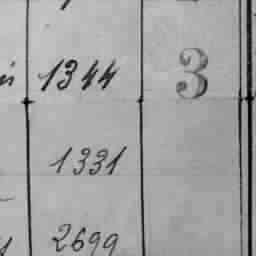 1344 3
1331
2699